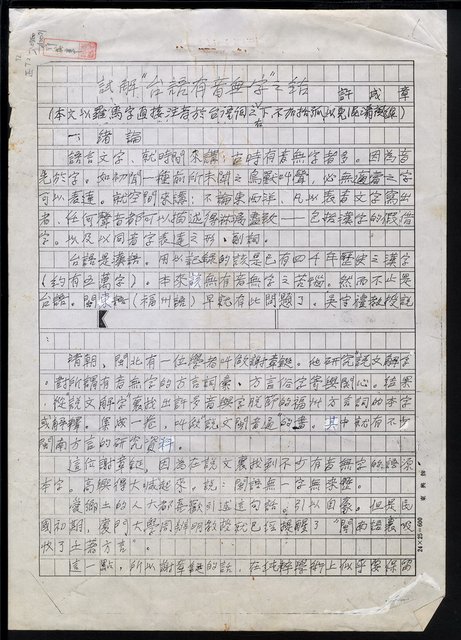 試解"台語有音無字"之結
許成章
(本文以羅馬字直接注音於台灣話之下不加括弧以免
一、緒論
語言文字,就時間來講;古時有音無字者多。因為音
先於字。如初聞一種前所未聞之鳥獸叫聲,必無適當之字
可以表達。就空間來講;不論東西洋,凡以表音文字寫出
者,任何聲音都可以描述得淋漓盡致——包括漢字的假借
字。以及以同音字表達之形、副詞。
台語是漢語。用以記錄的該是已有四千年歷史之漢字
(約有五萬字)。本來該無有音無字之苦惱。然而不止是
台語。閩東語(福州話)早就有此問題了。吳守禮教授說
:
清朝,閩北有一位學者叫做謝章鋌。他研究"說文解字
"對所謂有音無字的方言詞彙、方言俗字密與關心。結果
從說文解字裏找出許多音與字脫節的福州方言詞的本字
或解釋。集成一卷,叫做"說文閩音通"的書。其中就有不少
閩南方言的研究資料。
這位謝章鋌,因為在說文裏找到不少有音無字的語源
本字。高興得大喊起來。說:閩語無一字無來歷。
愛鄉土的人大都喜歡引述這句話。引以自豪。但是民
國初期,廈門大學周辨明教授就已經提醒了"閩南語裏吸
收了土著方言"。
這一點,所以謝章鋌的話,在純粹學術上似乎要保留
24×25=600